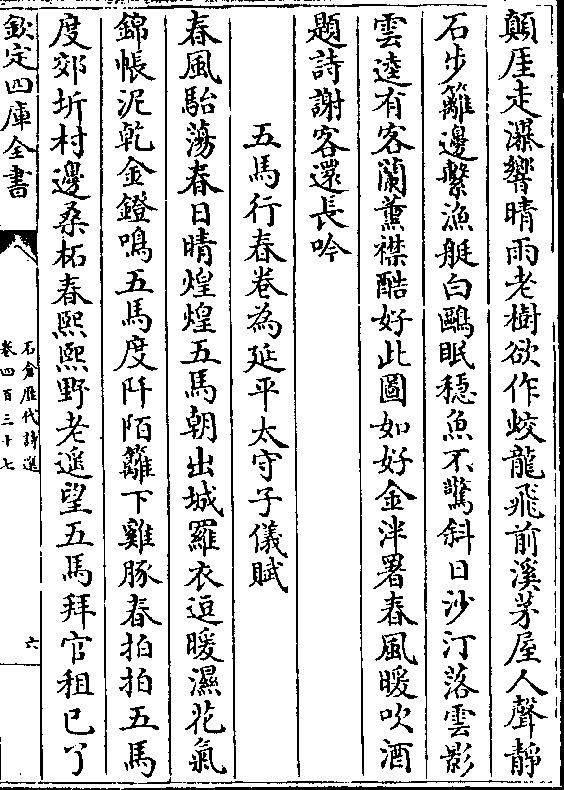 顛厓走瀑響晴雨老樹欲作蛟龍飛前溪茅屋人聲靜
石步籬邊繫漁艇白鷗眠穩魚不驚斜日沙汀落雲影
雲逵有客蘭薰襟酷好此圖如好金泮署春風暖吹酒
題詩謝客還長吟
五馬行春卷為延平太守子儀賦
春風駘蕩春日晴煌煌五馬朝出城羅衣逗暖濕花氣
錦帳泥乾金鐙鳴五馬度阡陌籬下雞豚春拍拍五馬
度郊圻村邊桑柘春熙熙野老遥望五馬拜官租已了
欽定四庫全書
石倉歴代詩選
卷四百三十七
六